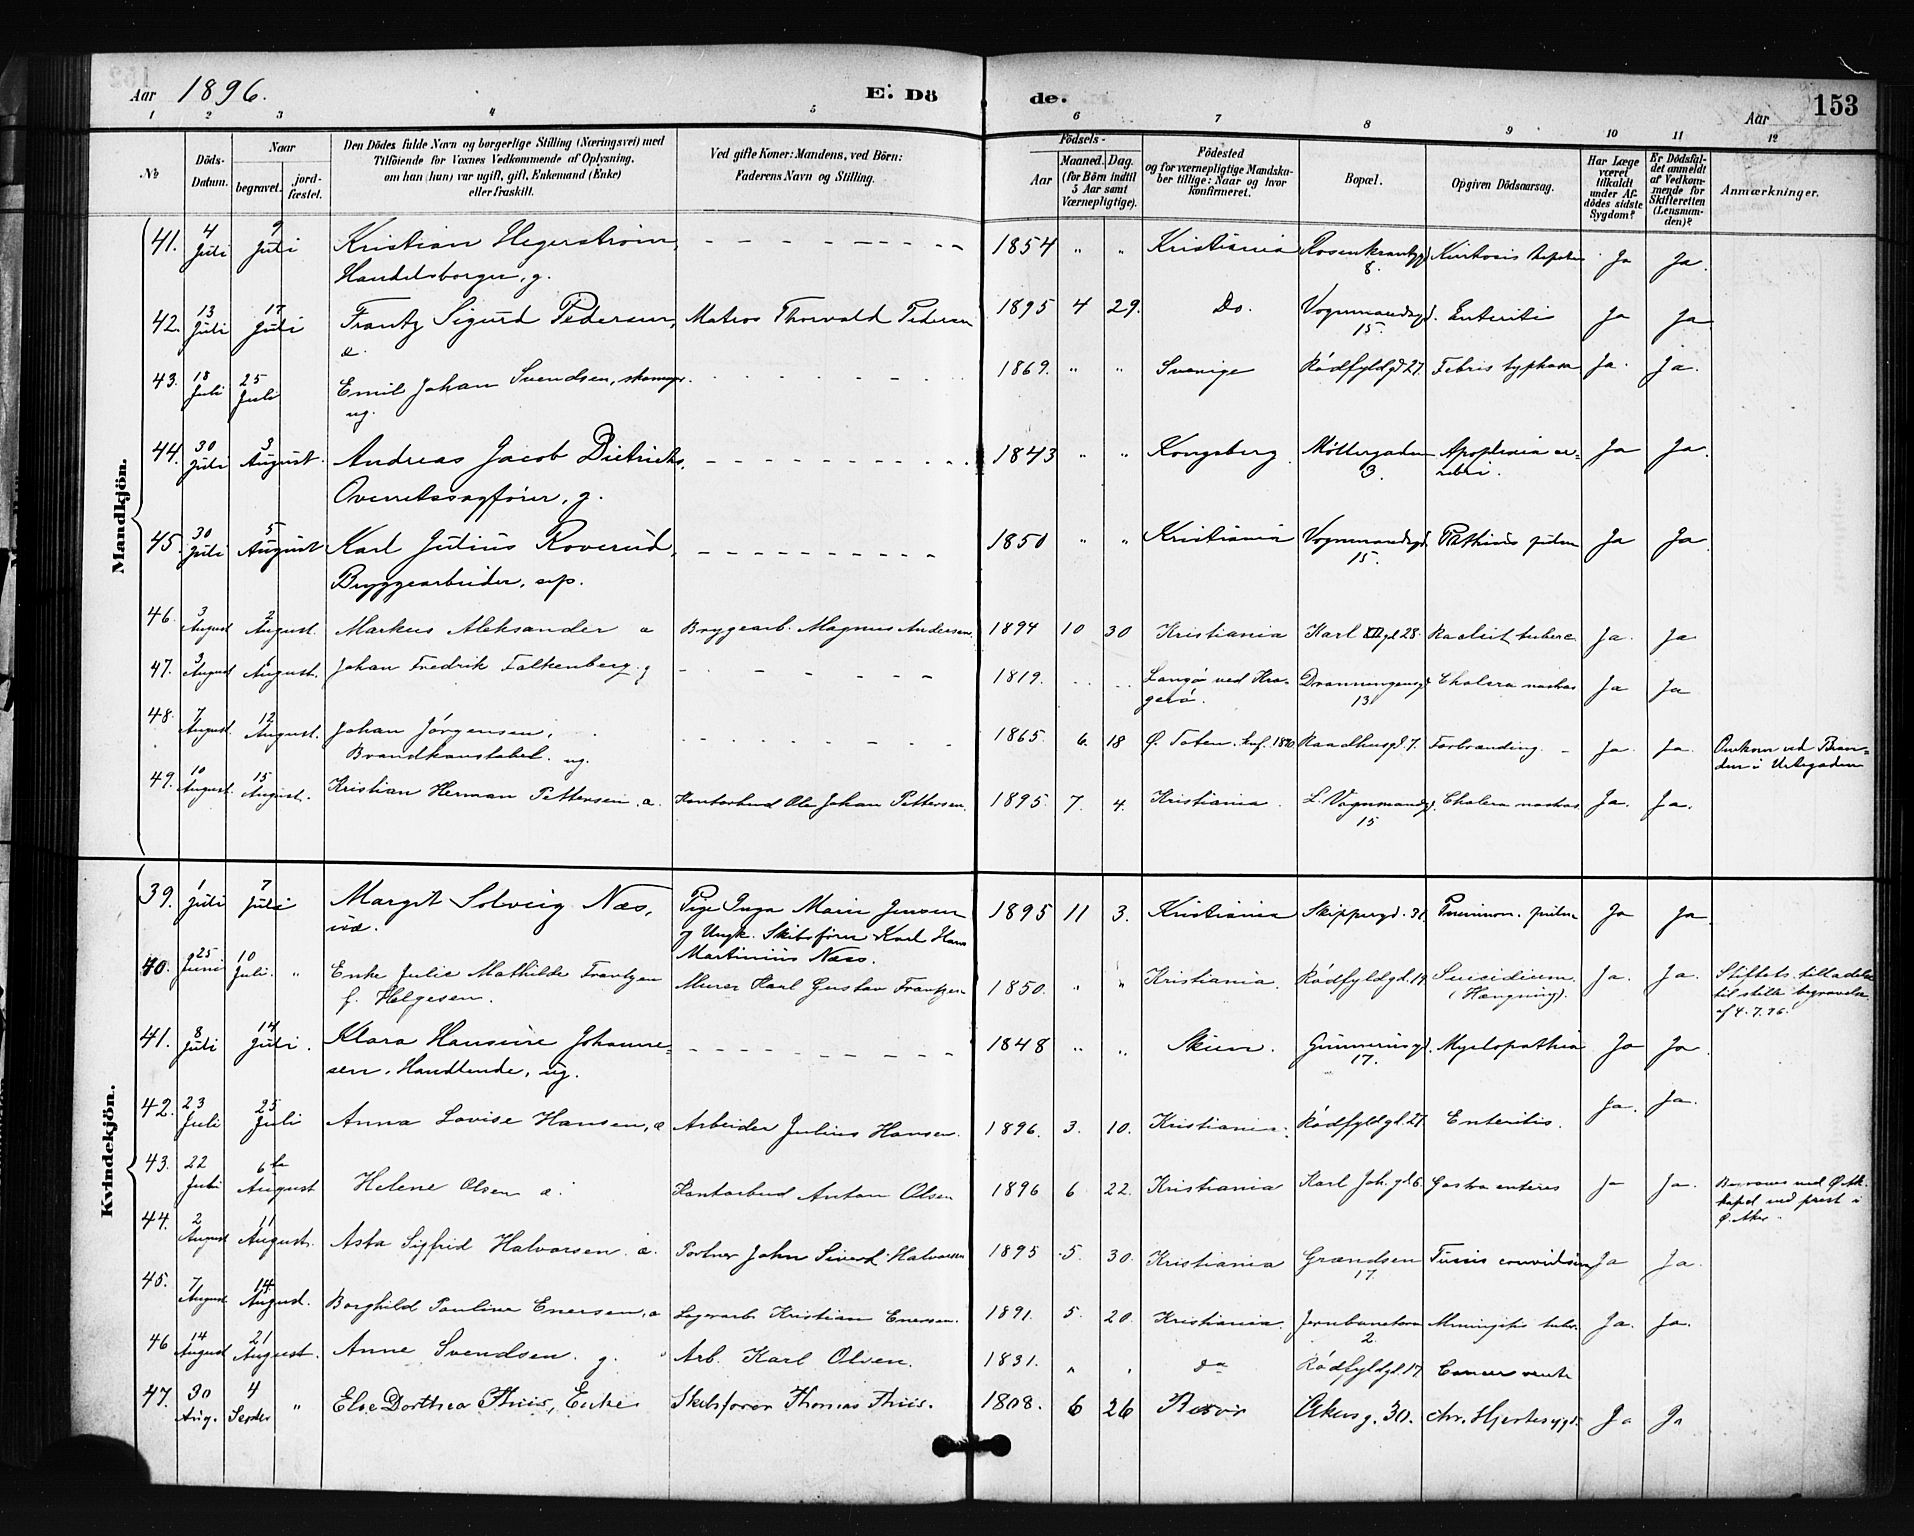 Aar 1896. E. Dö de. Aar 153
1 2 3 4 5 6 7 8 9 10 11 12
№
Döds-
Datum.
Naar
begravet.
jord-
fæstet.
Den Dödes fulde Navn og borgerlige Stilling (Næringsvei) med
Tilföiende for Voxnes Vedkommende af Oplysning,
om han (hun) var ugift, gift, Enkemand (Enke)
eller fraskilt.
Ved gifte Koner: Mandens, ved Börn:
Faderens Navn og Stilling.
Födsels-
Aar
Maaned. Dag.
(for Börn indtil
5 Aar samt
Værnepligtige).
Födested
og for værnepligtige Mandska-
ber tillige: Naar og hvor
konfirmeret.
Bopæl.
Opgiven Dödsaarsag.
Har Læge
været
tilkaldt
under Af-
dödes sidste
Sygdom?
Er Dödsfal-
det anmeldt
af Vedkom-
mende for
Skifteretten
(Lensman-
den)?
Anmærkninger.
Mandkjön.
41. 4 Juli 9 Juli Kristian Hegerström, 1854 " " Kristiania Ja Ja.
Handelsborger, g. 8.
42. 13 Juli 17 Juli Frantz Sigurd Pedersen, Matros Thorvald Pedersen 1895 4 29. Do. Vognmandsgd. Enteritis Ja Ja
æ. 15.
43. 18 Juli 25 Juli Emil Johan Svendsen, 1869. " " Sverige Rödfyldgd 27. Febris typhosa Ja. Ja.
ug.
44. 30 Juli 3 August. Andreas Jacob Dietrichs, 1843 " " Kongsberg. Möllergaden Apoplexia ce-
Overretssagförer, g. 3. rebri. Ja Ja.
45. 30 Juli 5 August Karl Julius Roverud, 1850 " " Kristiania Vognmandsgd. Ja Ja.
Bryggearbeider, sep. 15.
46. 3 August 2 August. Markus Aleksander æ Bryggearb. Magnus Andersen. 1894 10 30 Kristiania Karl XIIgd 28. Ja. Ja
47. 3 August August. Johan Fredrik Falkenberg. g 1819. Langö ved Kra-
gerö. Dronningensgd 13 Cholera nostras Ja Ja
48. 7 August 12 August. Johan Jörgensen, 1865. 6. 18 Ö. Toten. Raadhusgd. 7. Forbrænding. Ja. Ja. Omkom ved Bran-
Brandkonstabel. ug. den i Urtegaden
49. 10 August. 15 August. Kristian Herman Pettersen. æ. Kontorbud Ole Johan Pettersen. 1895. 7. 4. Kristiania. L. Vognmandsgd. Cholera nostras Ja. Ja.
15
Kvindekjön.
39. 1 Juli 7 Juli Margit Solveig Næs, Pige Inga Marie Jensen 1895 11 3. Kristiania Skippergd. 31. Ja Ja.
uæ. og Ungk. Skibsförer Karl Hans
Martinius Næss.
40. 25 Juni 10 Juli. " Enke Julie Mathilde Frantzen Murer Karl Gustav Frantzen 1850. " " Kristiania. Rödfyldgd. 19. Suicidium Ja. Ja. Stiftets tilladelse
f. Helgesen. (Hængning). til stille begravelse
af 4.7.96.
41. 8 Juli 14 Juli. Klara Hansine Johanne- 1848 " " Skien. Gunnerusgd. Myelopathia Ja Ja.
sen. Handlende, ug. 17.
42. 23 Juli 25 Juli Anna Lovise Hansen, æ Arbeider Julius Hansen. 1896. 3. 10. Kristiania. Rödfyldgd. 27. Enteritis. Ja. Ja.
43. 22 Juli 6te August Helene Olsen æ. Kontorbud Anton Olsen 1896 6 22. Kristiania Karl Joh. gd. 6. Gastro enteris Ja Ja. Begraves ved Ö. Ak.
kapel ved prest i
Ö. Aker.
44. 2 August 11 August. Asta Sigfrid Halvorsen. æ. Portner John Siverd Halvorsen 1895 5. 30. Kristiania Grændsen Tussis convulsiva Ja Ja.
17.
45. 7 August 14 August. Borghild Pauline Enersen, æ Lagerarb. Kristian Enersen. 1891. 5. 20. Kristiania. Jernbanetorv Meningitis tuber. Ja. Ja.
2.
46 14 August 21 August. Anne Svendsen. g. Arb. Karl Olsen. 1831. " " do Rödfyldgd. 17. Cancer
47. 30 Aug. 4 " Else Dorthea Thiis, Enke Skibsförer Thomas Thiis. 1808. 6 26 Risör Akersg. 30. chr. Hjertesygd. Ja Ja